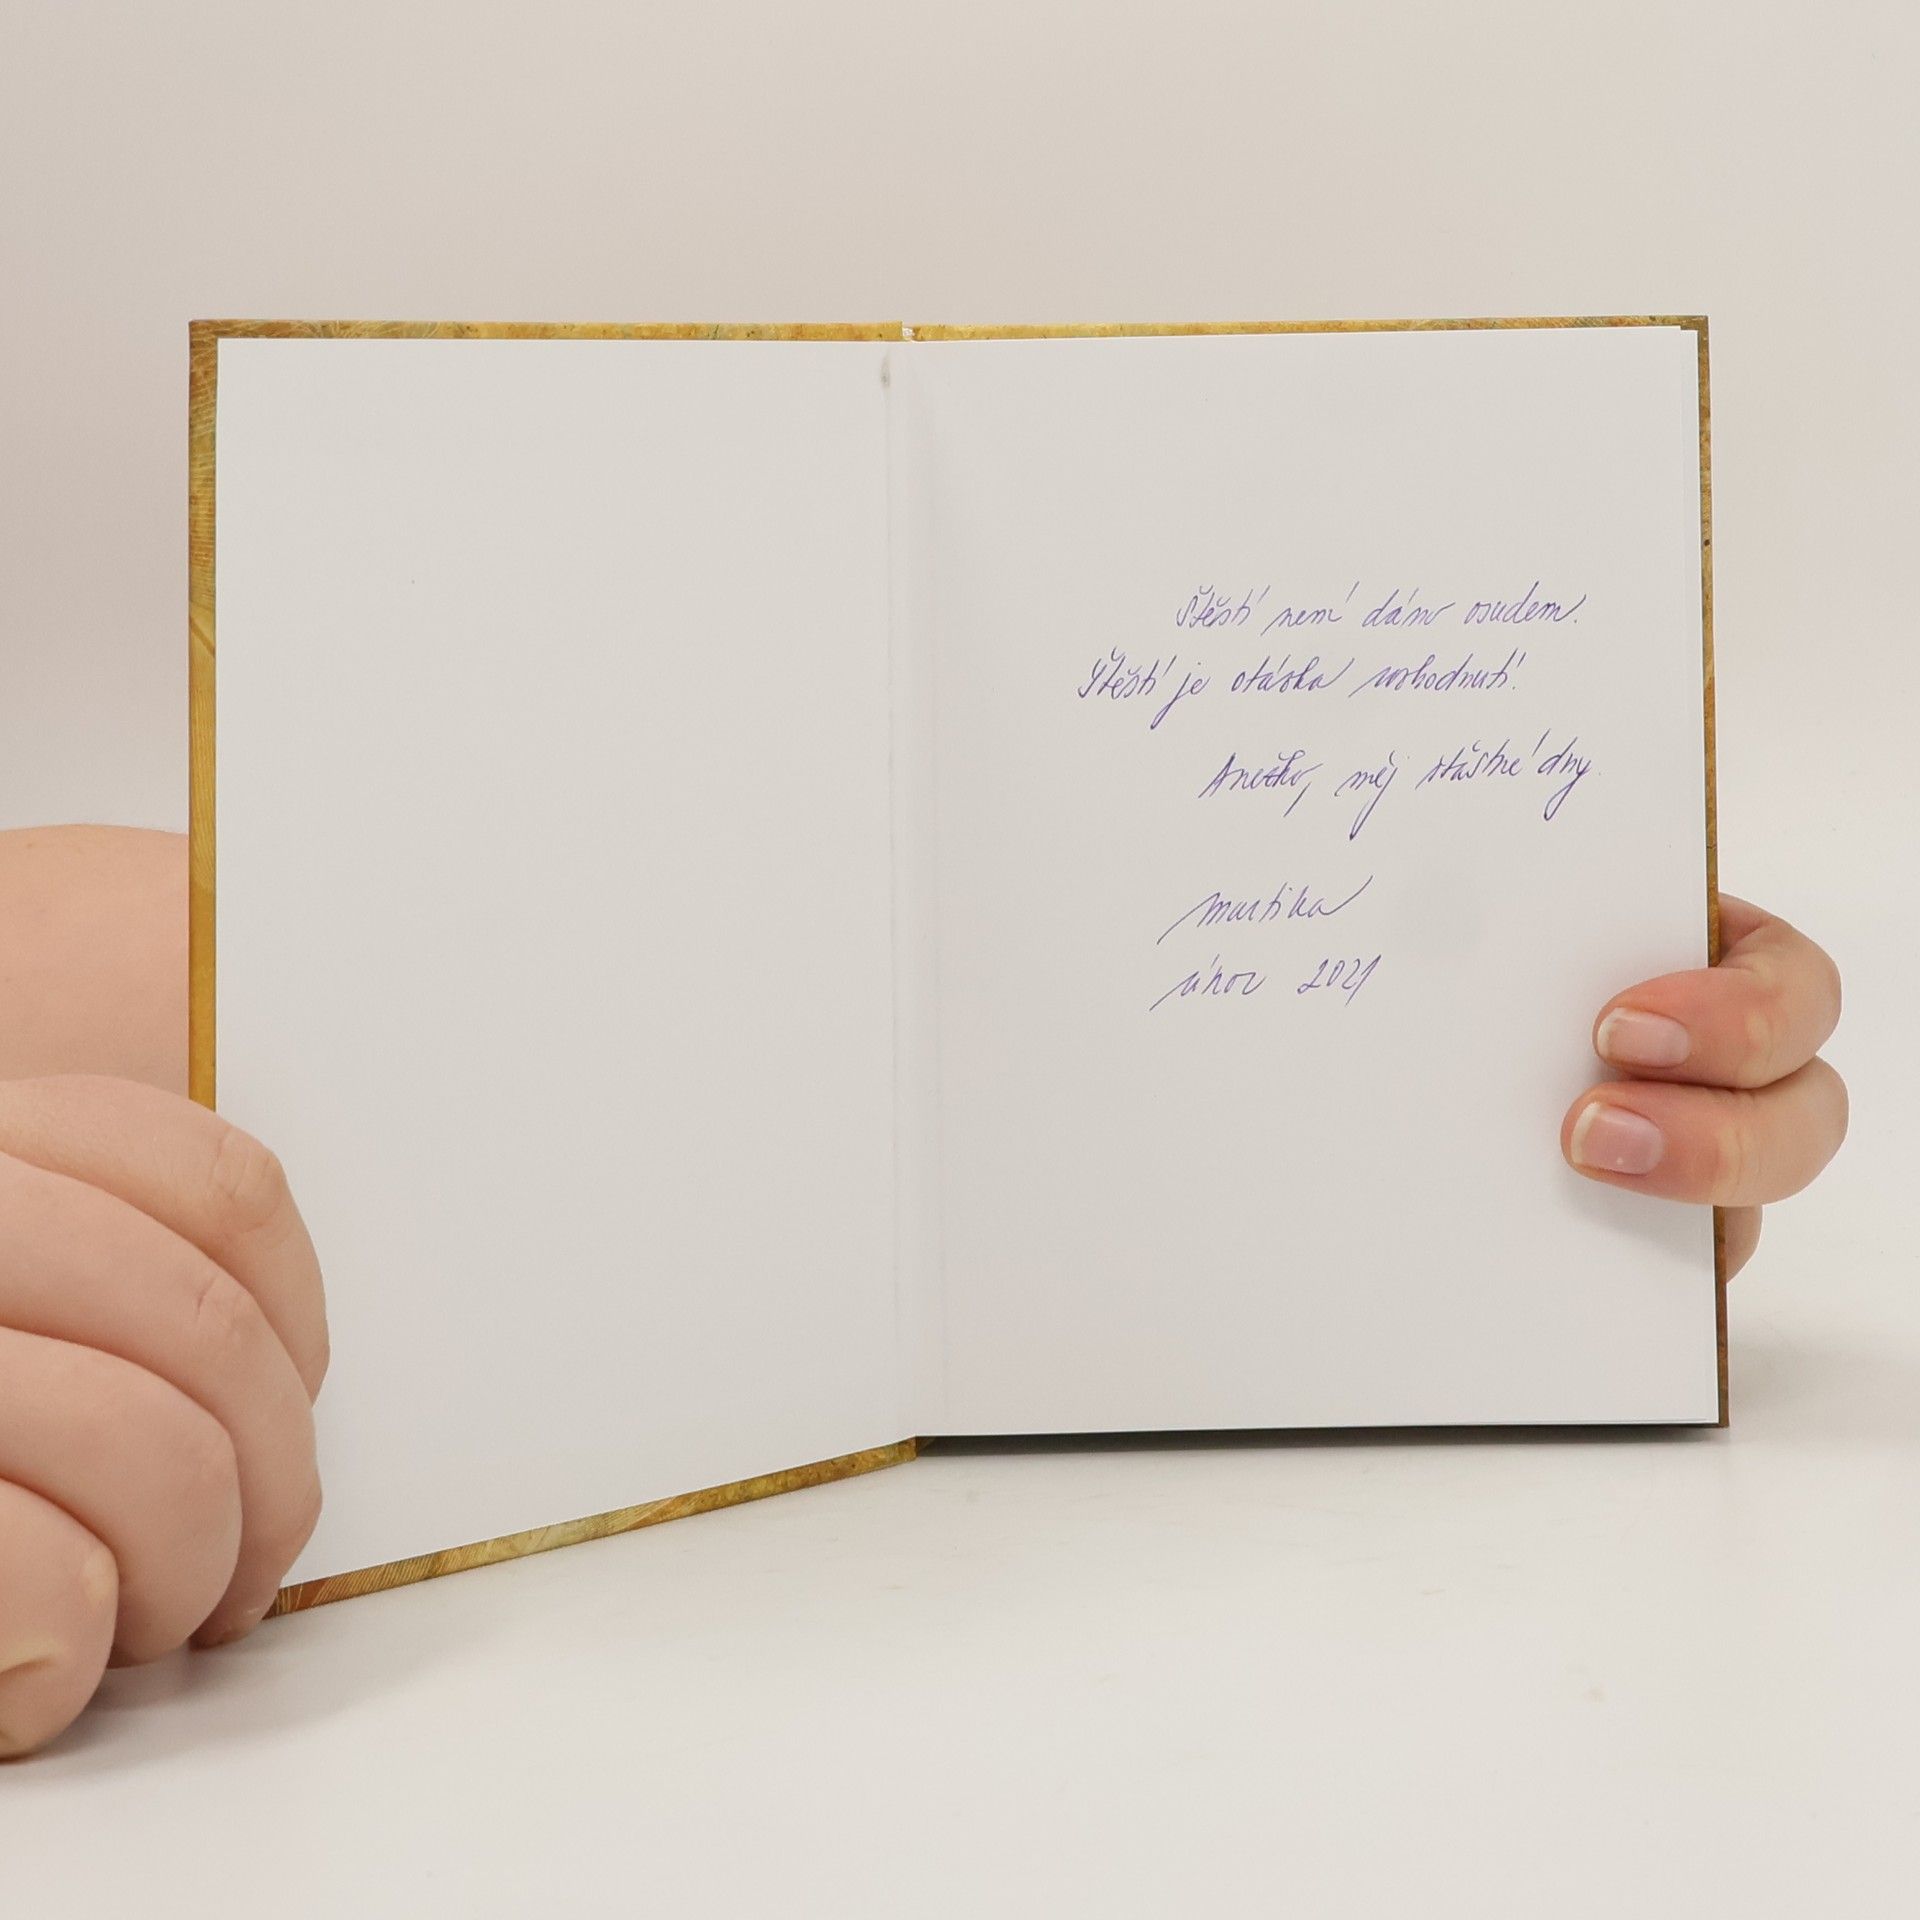 Štěstí není dáno osudem.
Štěstí je otázka rozhodnutí.
Anežko, měj šťastné dny.
Martika
únor 2021